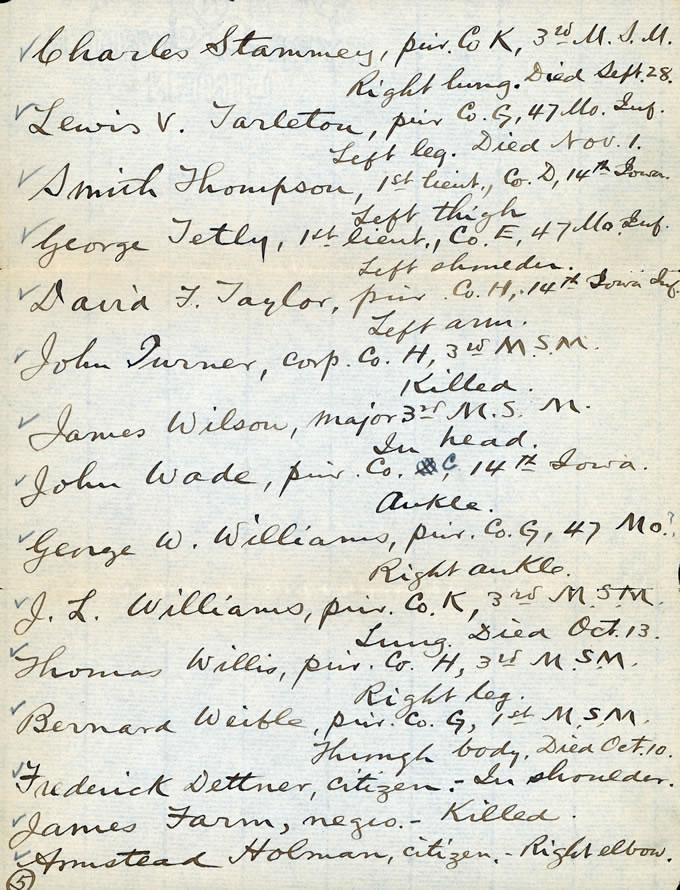 Charles Stammey, priv. Co K, 3rd M. S. M.
Right lung. Died Sept. 28.
Lewis V. Tarleton, priv Co. G, 47 Mo. Inf.
Left leg. Died Nov. 1.
Smith Thompson, 1st lieut., Co. D, 14th Iowa.
Left thigh
George Tetly, 1st lieut., Co. E, 47 Mo. Inf.
Left shoulder.
David F. Taylor, priv. Co. H, 14th Iowa Inf.
Left arm.
John Turner, corp. Co. H, 3rd M.S.M.
Killed.
James Wilson, major 3rd M. S. M.
In head.
John Wade, priv. Co. C, 14th Iowa.
Ankle.
George W. Williams, priv. Co. G, 47 Mo.?
Right ankle.
J. L. Williams, priv. Co. K, 3rd M.S.M.
Lung. Died Oct. 13.
Thomas Willis, priv. Co. H, 3rd M.S.M.
Right leg.
Bernard Weible, priv. Co. G, 1st M.S.M.
Through body. Died Oct. 10.
Frederick Dettner, citizen. - In shoulder.
James Farm, negro. - Killed.
Armstead Holman, citizen. - Right elbow.
5